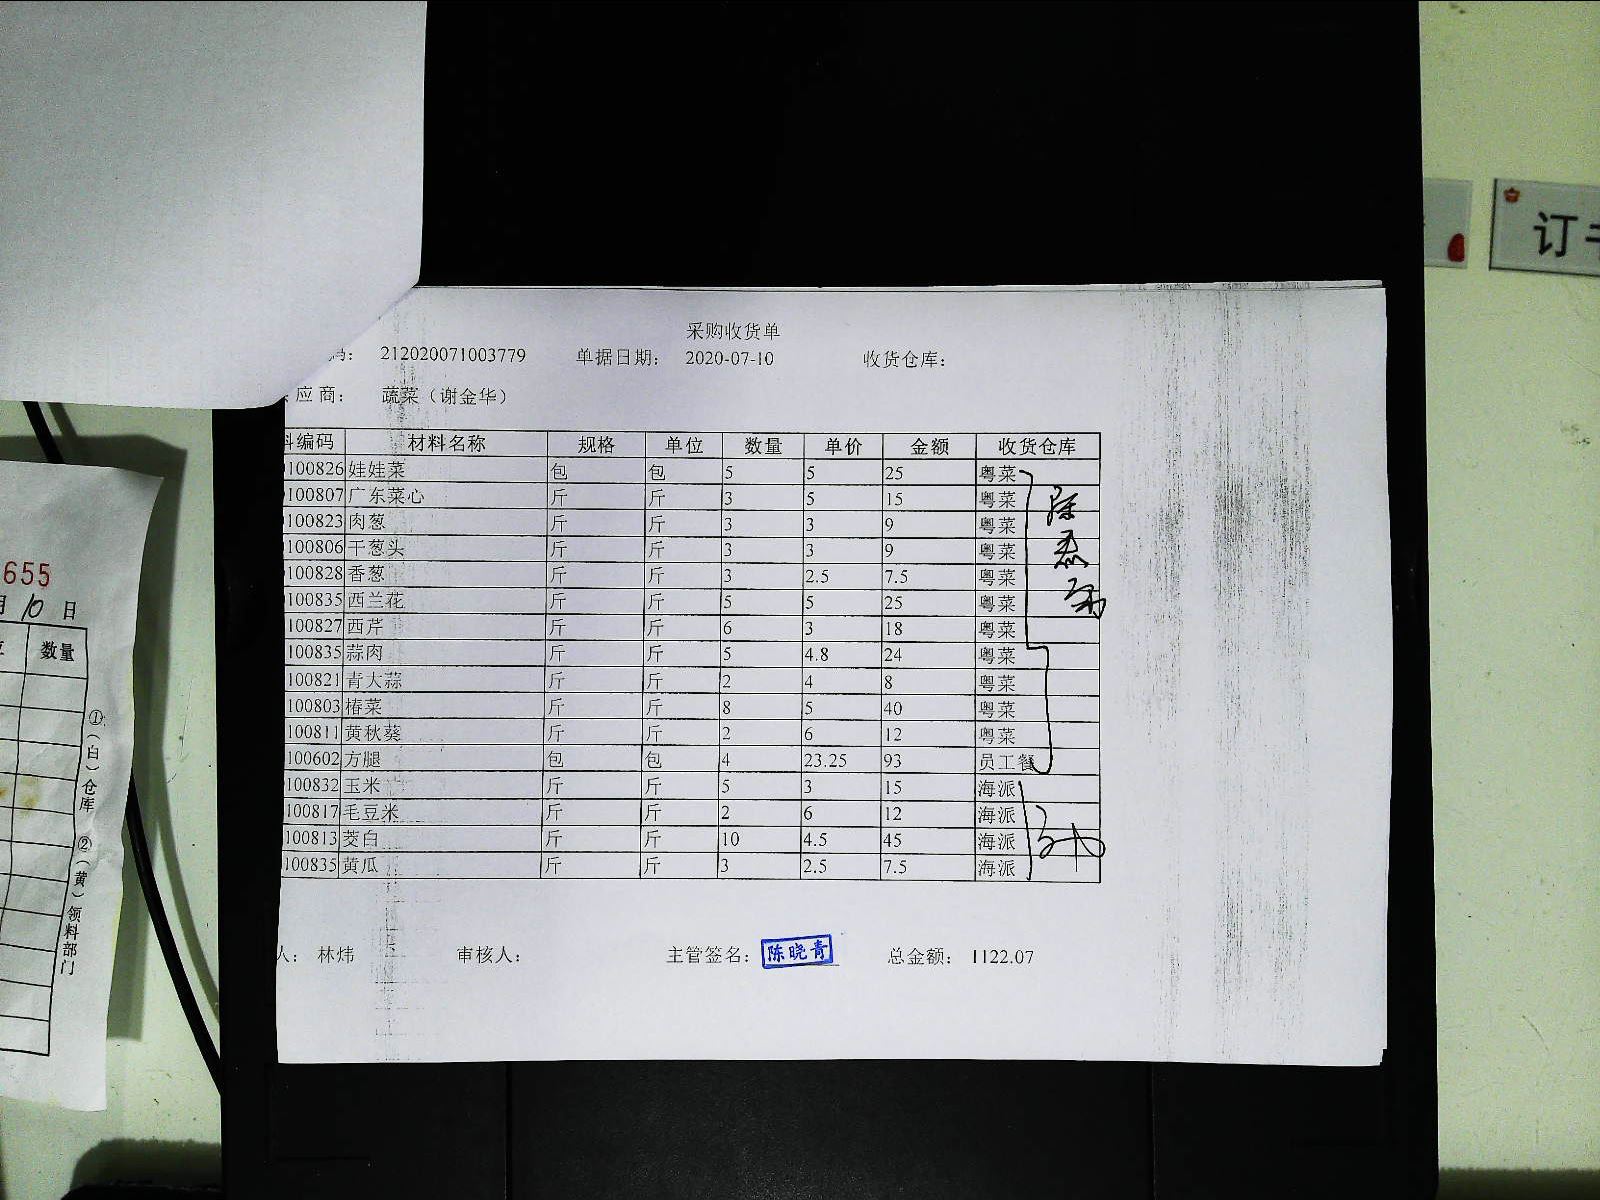 采购收货单
码： 212020071003779 单据日期： 2020-07-10 收货仓库：
应商： 蔬菜（谢金华）
料编码 材料名称 规格 单位 数量 单价 金额 收货仓库
100826 娃娃菜 包 包 5 5 25 粤菜
100807 广东菜心 斤 斤 3 5 15 粤菜
100823 肉葱 斤 斤 3 3 9 粤菜
100806 干葱头 斤 斤 3 3 9 粤菜
100828 香葱 斤 斤 3 2.5 7.5 粤菜
100835 西兰花 斤 斤 5 5 25 粤菜
100827 西芹 斤 斤 6 3 18 粤菜
100835 蒜肉 斤 斤 5 4.8 24 粤菜
100821 青大蒜 斤 斤 2 4 8 粤菜
100803 椿菜 斤 斤 8 5 40 粤菜
100811 黄秋葵 斤 斤 2 6 12 粤菜
100602 方腿 包 包 4 23.25 93 员工餐
100832 玉米 斤 斤 5 3 15 海派
100817 毛豆米 斤 斤 2 6 12 海派
100813 茭白 斤 斤 10 4.5 45 海派
100835 黄瓜 斤 斤 3 2.5 7.5 海派
人： 林炜 审核人： 主管签名： 陈晓青 总金额： 1122.07
655
月 10 日
数量
①（白）仓库 ②（黄）领料部门
订